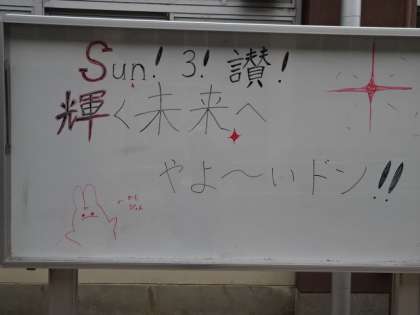 Sun! 3! 讃!
輝く未来へ
やよ〜いドン!!